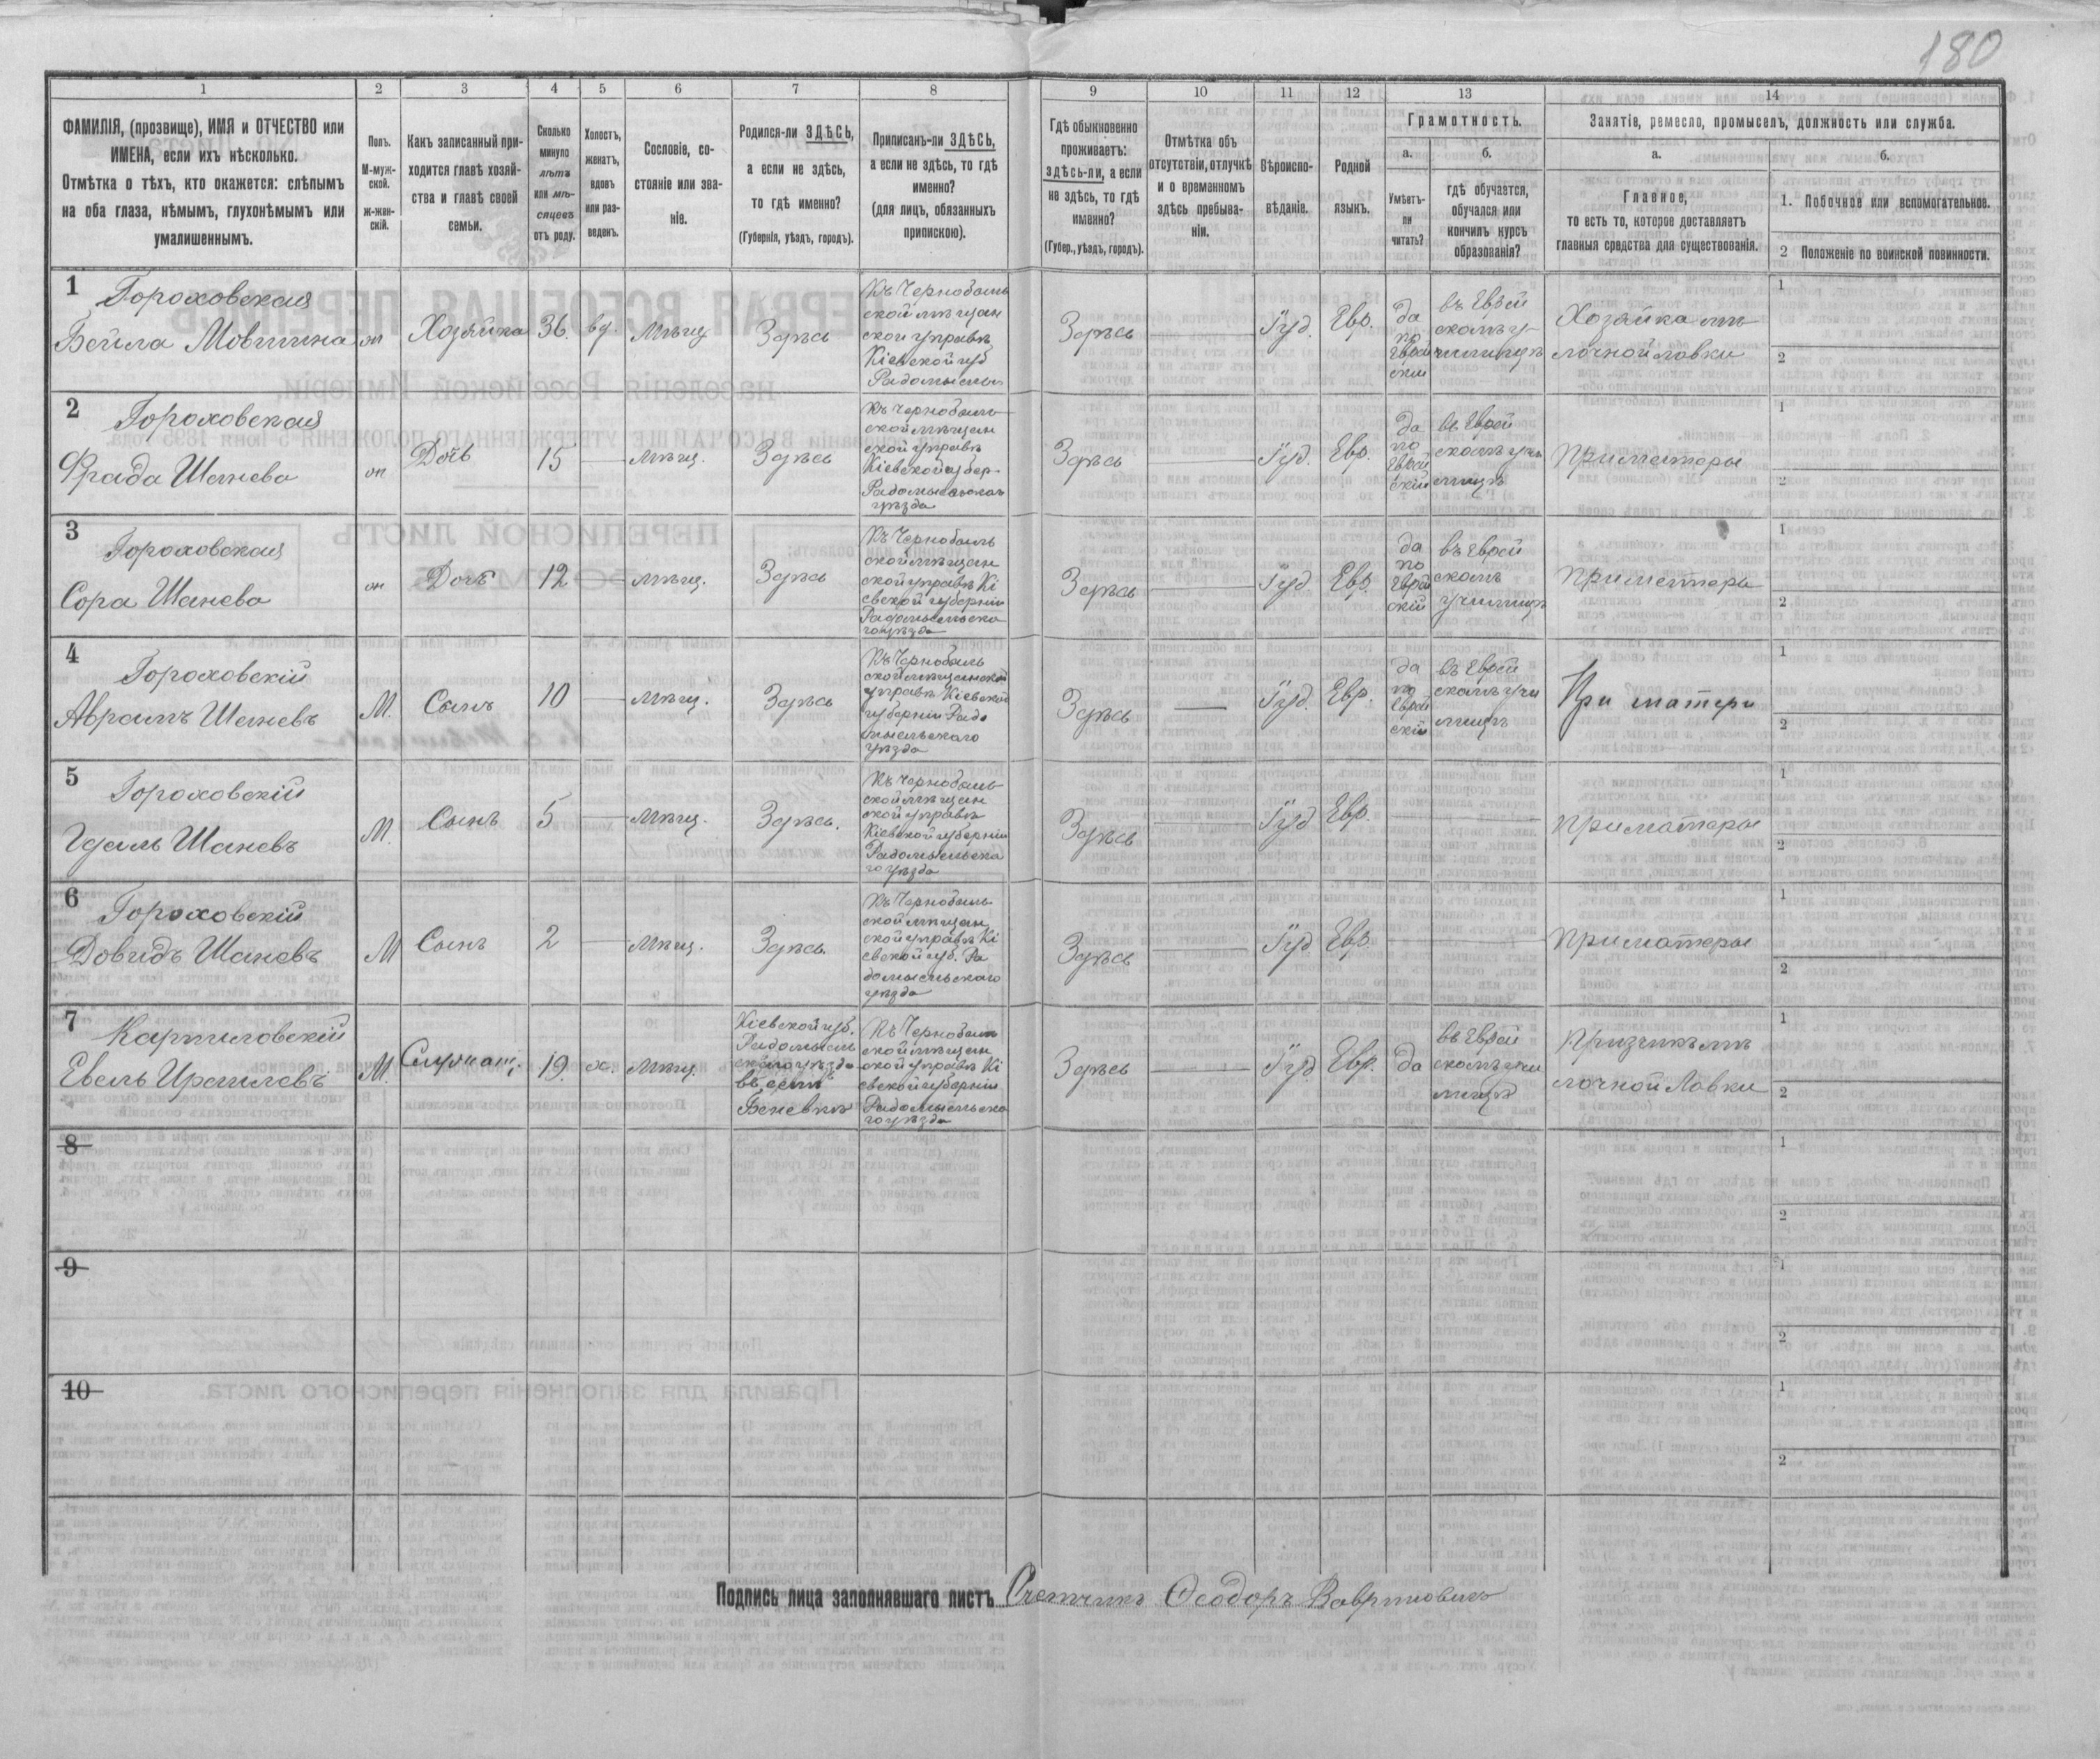 180
1 2 3 4 5 6 7 8 9 10 11 12 13 14
ФАМИЛІЯ, (прозвище), ИМЯ и ОТЧЕСТВО или
ИМЕНА, если ихъ нѣсколько.
Отмѣтка о тѣхъ, кто окажется: слѣпымъ
на оба глаза, нѣмымъ, глухонѣмымъ или
умалишеннымъ.
Полъ.
М-муж-
ской.
ж-жен-
скій.
Какъ записанный при-
ходится главѣ хозяй-
ства и главѣ своей
семьи.
Сколько
минуло
лѣтъ
или мѣ-
сяцевъ
отъ роду.
Холостъ,
женатъ,
вдовъ
или раз-
веденъ.
Сословіе, со-
стояніе или зва-
ніе.
Родился-ли ЗДѢСЬ,
а если не здѣсь,
то гдѣ именно?
(Губернія, уѣздъ, городъ).
Приписанъ-ли ЗДѢСЬ,
а если не здѣсь, то гдѣ
именно?
(для лицъ, обязанныхъ
припискою).
Гдѣ обыкновенно
проживаетъ:
здѣсь-ли, а если
не здѣсь, то гдѣ
именно?
(Губер., уѣздъ, городъ).
Отмѣтка объ
отсутствіи, отлучкѣ
и о временномъ
здѣсь пребыва-
ніи.
Вѣроиспо-
вѣданіе.
Родной
языкъ.
Грамотность.
а.
Умѣетъ-
ли
читать?
б.
гдѣ обучается,
обучался или
кончилъ курсъ
образованія?
Занятіе, ремесло, промыселъ, должность или служба.
а.
Главное,
то есть то, которое доставляетъ
главныя средства для существованія.
б.
1. Побочное или вспомогательное.
2 Положеніе по воинской повинности.
1
Гороховская
Бейла Мовшина
Хозяйка
36
вд.
Мѣщ
Здѣсь
Къ Чернобыль
ской мѣщан
ской управѣ
Кіевской губ
Радомысль
Здѣсь
Іуд.
Евр.
да
по
Еврей
скій
въ Еврей
скомъ у-
чилищѣ
Хозяйка мѣ
лочной лавки
1
2
2
Гороховская
Фрада Шаева
Дочь
15
Мѣщ.
Здѣсь
Къ Чернобыль
ской мѣщан
ской управѣ
Кіевской губер.
уѣзда
Здѣсь
Іуд.
Евр.
да
по
Еврей
скій
въ Еврей
скомъ учи
лищѣ
При матери
1
2
3
Гороховская
Сора Шаева
Дочь
12
Мѣщ.
Здѣсь
Къ Чернобыль
ской мѣщан
ской управѣ Кі
евской губерніи
Радомысльска
го уѣзда
Здѣсь
Іуд.
Евр.
да
по
Еврей
скій
въ Еврей
скомъ
училищѣ
При матери
1
2
4
Гороховскій
Абрамъ Шаевъ
М.
Сынъ
10
Мѣщ.
Здѣсь
Къ Чернобыль
ской мѣщанской
управѣ Кіевской
губерніи Радо
мысльскаго
уѣзда
Здѣсь
Іуд.
Евр.
да
по
Еврей
скій
въ Еврей
скомъ учи
лищѣ
При матери
1
2
5
Гороховскій
Гдаль Шаевъ
М.
Сынъ
5
Мѣщ.
Здѣсь.
Къ Чернобыль
ской мѣщан
ской управѣ
Кіевской губерніи
Радомысльска
го уѣзда
Здѣсь
Іуд
Евр.
При матери
1
2
6
Гороховскій
Довидъ Шаевъ
М
Сынъ
2
Мѣщ.
Здѣсь.
Къ Чернобыль
ской мѣщан
ской управѣ Кі
евской губ. Ра
домысльскаго
уѣзда
Здѣсь
Іуд
Евр.
При матери
1
2
7
Карпиловскій
Евель Ирмилевъ
М.
19.
х.
Мѣщ.
Кіевской губ.
Радомысль
скаго уѣзда
въ селѣ
Къ Чернобыль
ской мѣщан
ской управѣ Кі
евской губерніи
Радомысльска
го уѣзда
Здѣсь
Іуд.
Евр.
да
въ Еврей
скомъ учи
лищѣ
Прикащикъ мѣ
лочной Лавки
1
2
8
1
2
9
1
2
10
1
2
Подпись лица заполнявшаго листъ Счетчикъ Ѳеодоръ